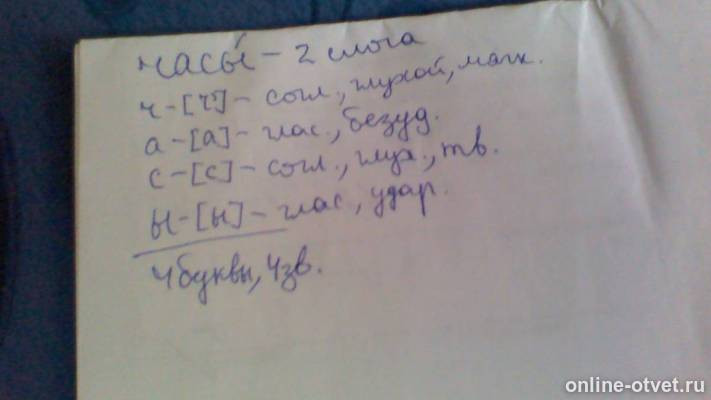 часы́ - 2 слога
ч - [ч'] - согл., глухой, мягк.
а - [а] - глас., безуд.
с - [с] - согл., глух., тв.
ы - [ы] - глас, удар.
4 буквы, 4 зв.
online-otvet.ru